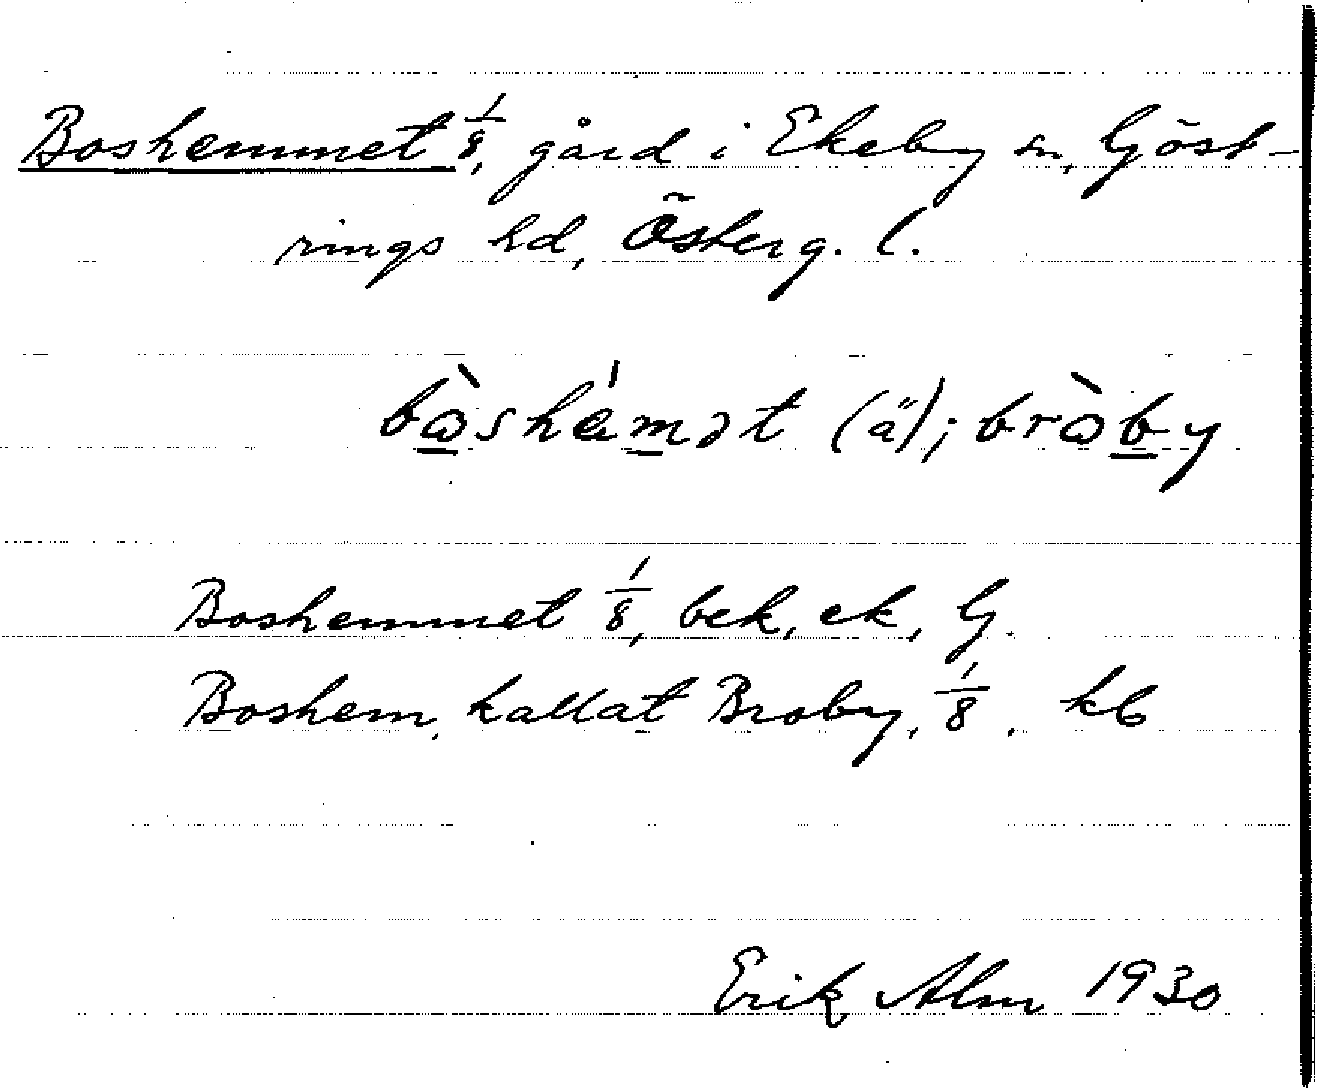 Boshemmet 1/8, gård i Ekeby sn, Göst-
rings hd, Österg. l.
bòshémət (ä); bròby
Boshemmet 1/8, bek, ek, G.
Boshem, kallat Broby, 1/8. kb
Erik Alm 1930